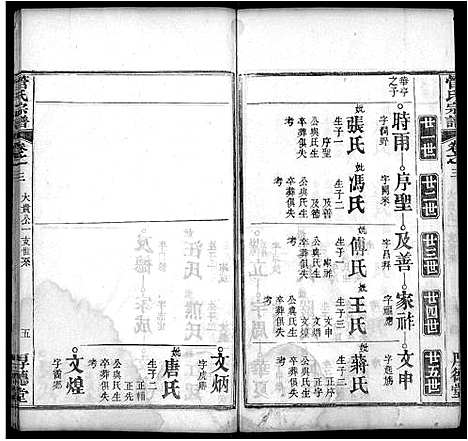 管氏宗譜
廿一世
廿二世
廿三世
廿四世
廿五世
華亭
之子
時雨
字潤野
妣張氏
生子一
序聖
公與氏生
卒葬俱失
考
序聖
字聞來
妣馮氏
生子二
及善
及德
公與氏生
卒葬俱失
考
及善
字昌拜
妣傅氏
生子一
家祚
公與氏生
卒葬俱失
考
家祚
字順應
妣王氏
生子三
文申
文炳
文煌
公與氏生
卒葬俱失
考
文申
妣蔣氏
生子二
正字
正序
公與氏生
卒葬俱失
考
文炳
妣唐氏
生子二
正輔
正先
公與氏生
卒葬俱失
考
文煌
管氏宗譜
卷之三
大貴公一支世系
五
厚德堂